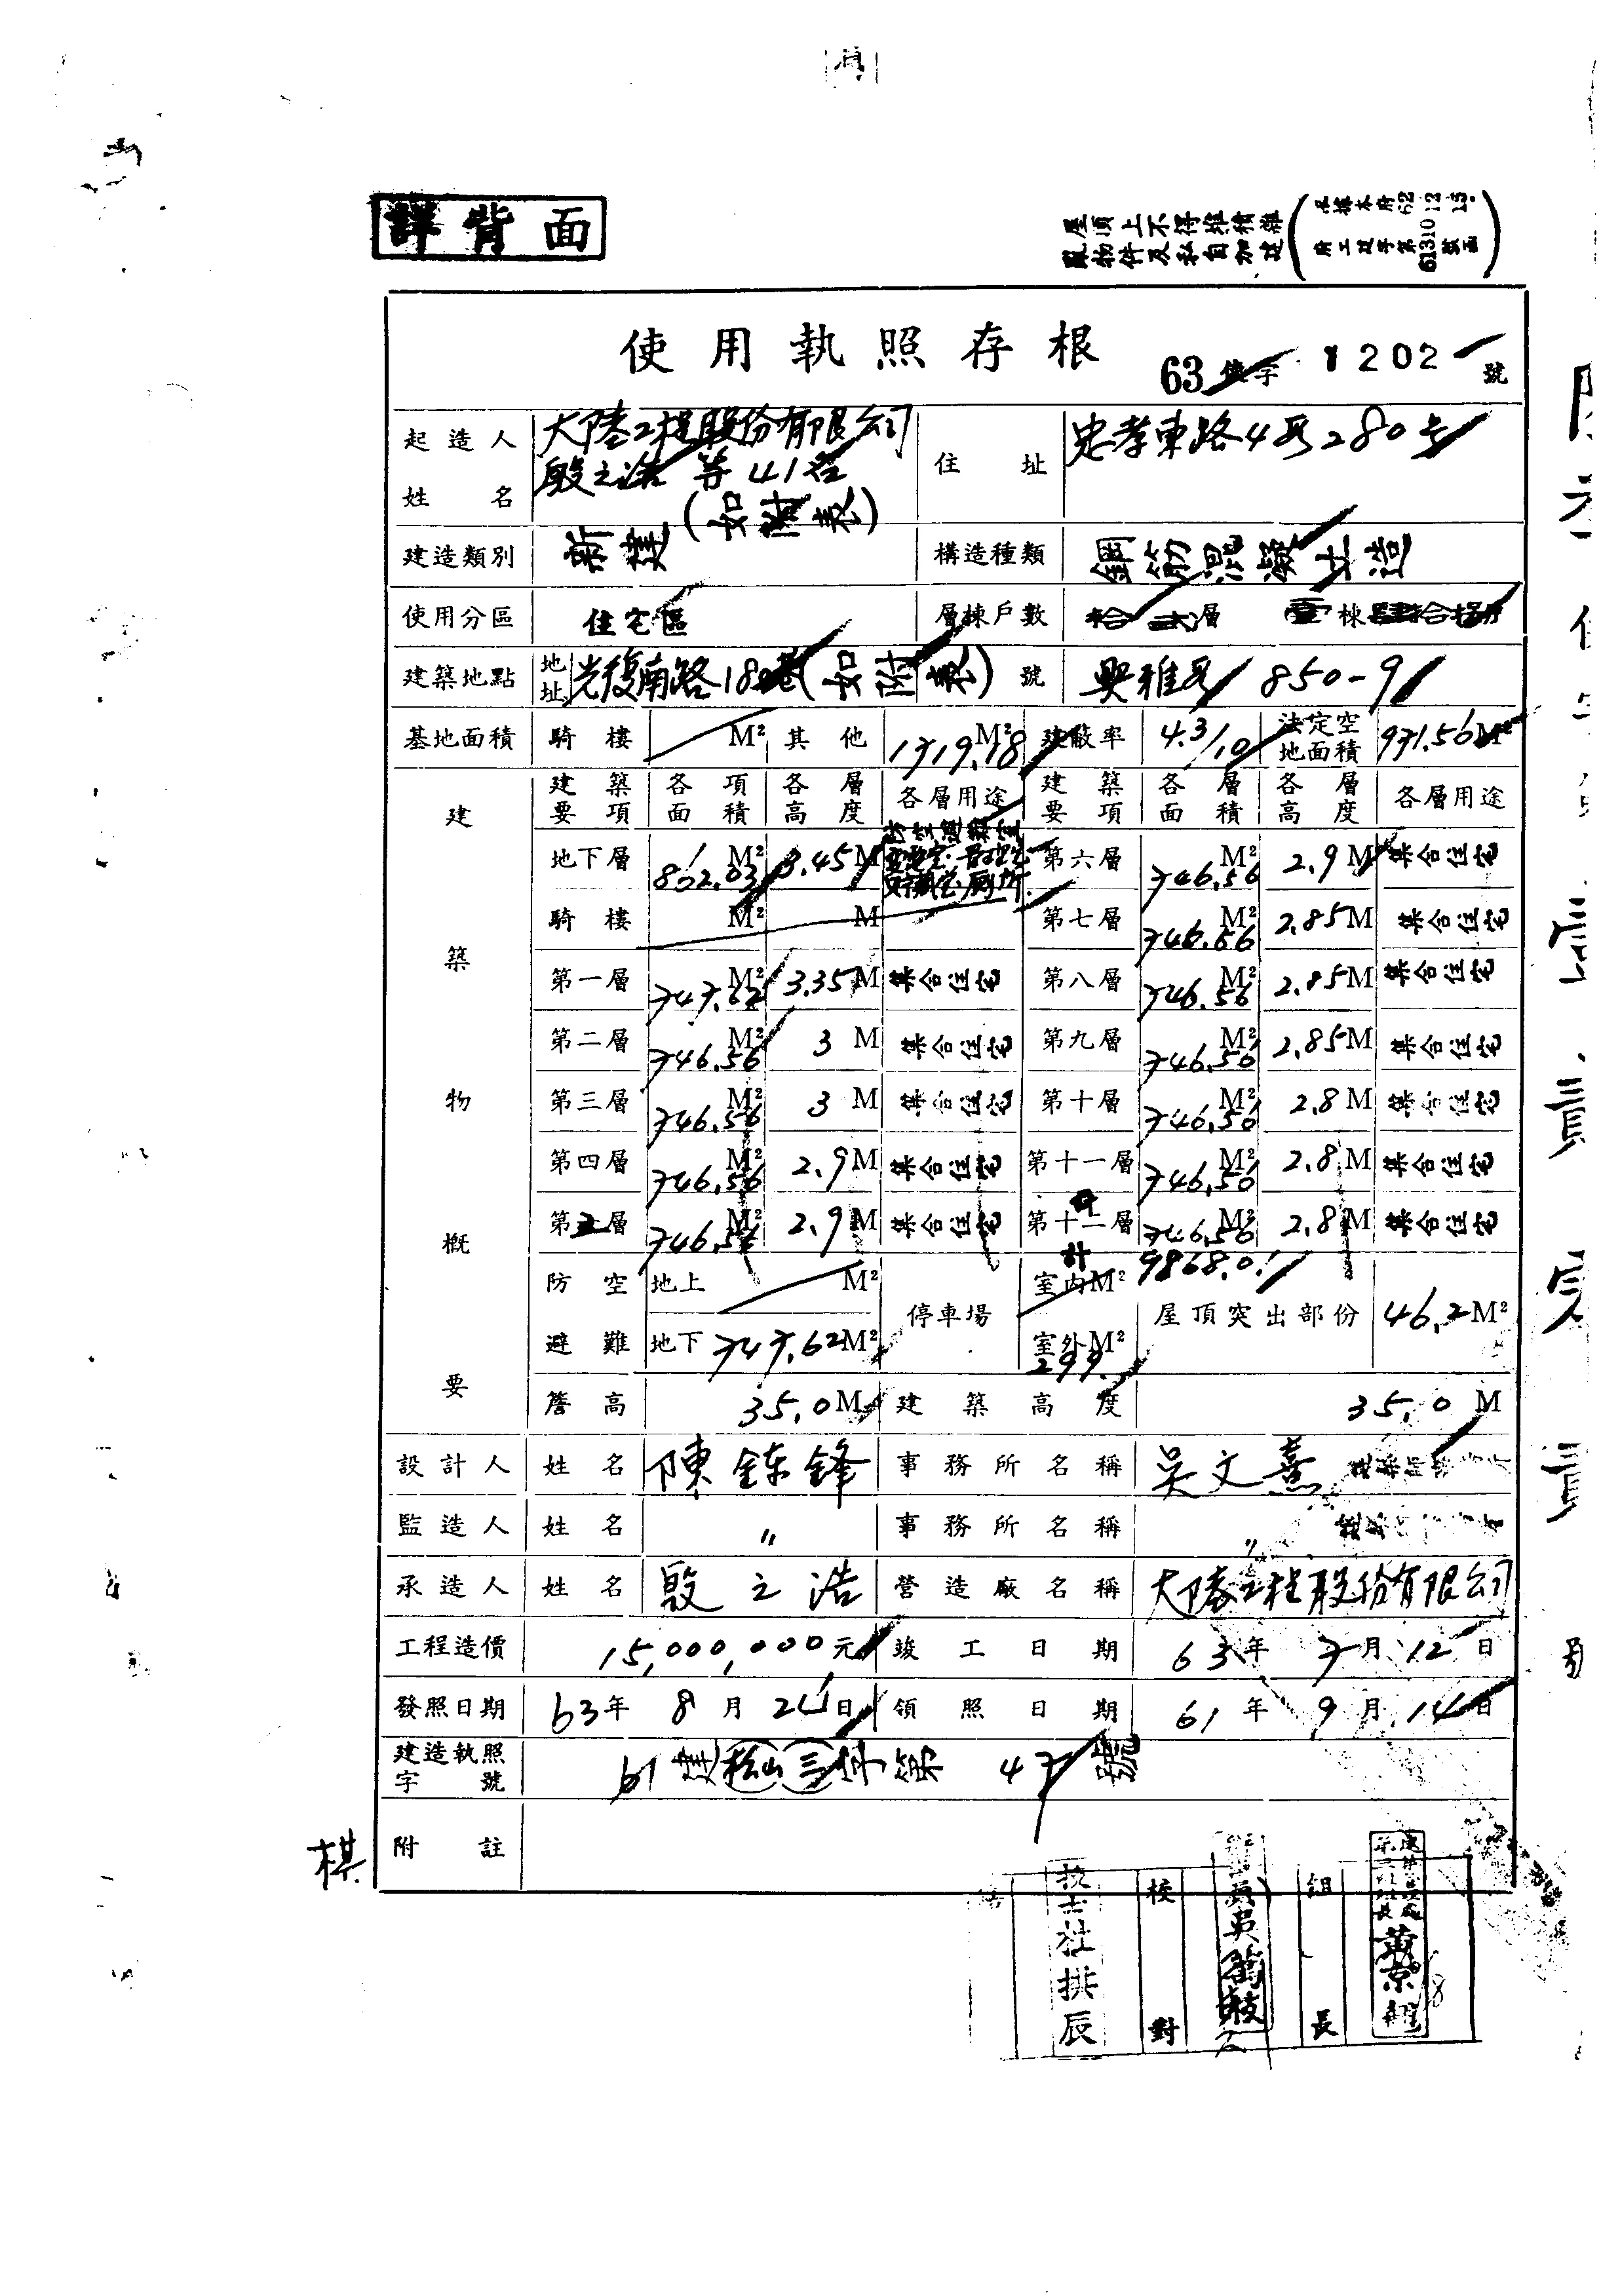 詳背面
屋頂上不得堆積雜
亂物件及私自加建
使用執照存根
63 使字 1202 號
起造人姓名 大陸工程股份有限公司
殷之浩 等41名
(如附表)
住址 忠孝東路4段280号
建造類別 新建 構造種類 鋼筋混凝土造
使用分區 住宅區 層棟戶數 拾貳層 壹棟
建築地點 地址 光復南路180巷(如附表) 號 興雅段 850-9
基地面積 騎樓 M² 其他 1719.18 M² 建蔽率 4.3/10 法定空地面積 971.56 M²
建築物概要
建築要項 各項面積 各層高度 各層用途 建築要項 各層面積 各層高度 各層用途
地下層 802.03 M² 3.45 M 防空避難室 第六層 746.56 M² 2.9 M 集合住宅
騎樓 M² M 第七層 746.56 M² 2.85 M 集合住宅
第一層 747.62 M² 3.35 M 集合住宅 第八層 746.56 M² 2.85 M 集合住宅
第二層 746.56 M² 3 M 集合住宅 第九層 746.56 M² 2.85 M 集合住宅
第三層 746.56 M² 3 M 集合住宅 第十層 746.56 M² 2.8 M 集合住宅
第四層 746.56 M² 2.9 M 集合住宅 第十一層 746.56 M² 2.8 M 集合住宅
第五層 746.56 M² 2.9 M 集合住宅 第十二層 746.56 M² 2.8 M 集合住宅
計 9868.01
防空避難 地上 M² 停車場 室內 M² 屋頂突出部份 46.2 M²
地下 747.62 M² 室外 M² 299.
簷高 35.0 M 建築高度 35.0 M
設計人 姓名 陳錸鋒 事務所名稱 吳文熹
監造人 姓名 〃 事務所名稱 〃
承造人 姓名 殷之浩 營造廠名稱 大陸工程股份有限公司
工程造價 15,000,000元 竣工日期 63年 7月 12日
發照日期 63年 8月 24日 領照日期 61年 9月 14日
建造執照字號 61建(松山)(三)字第 47 號
附註
棋
技士杜拱辰 校對 組長